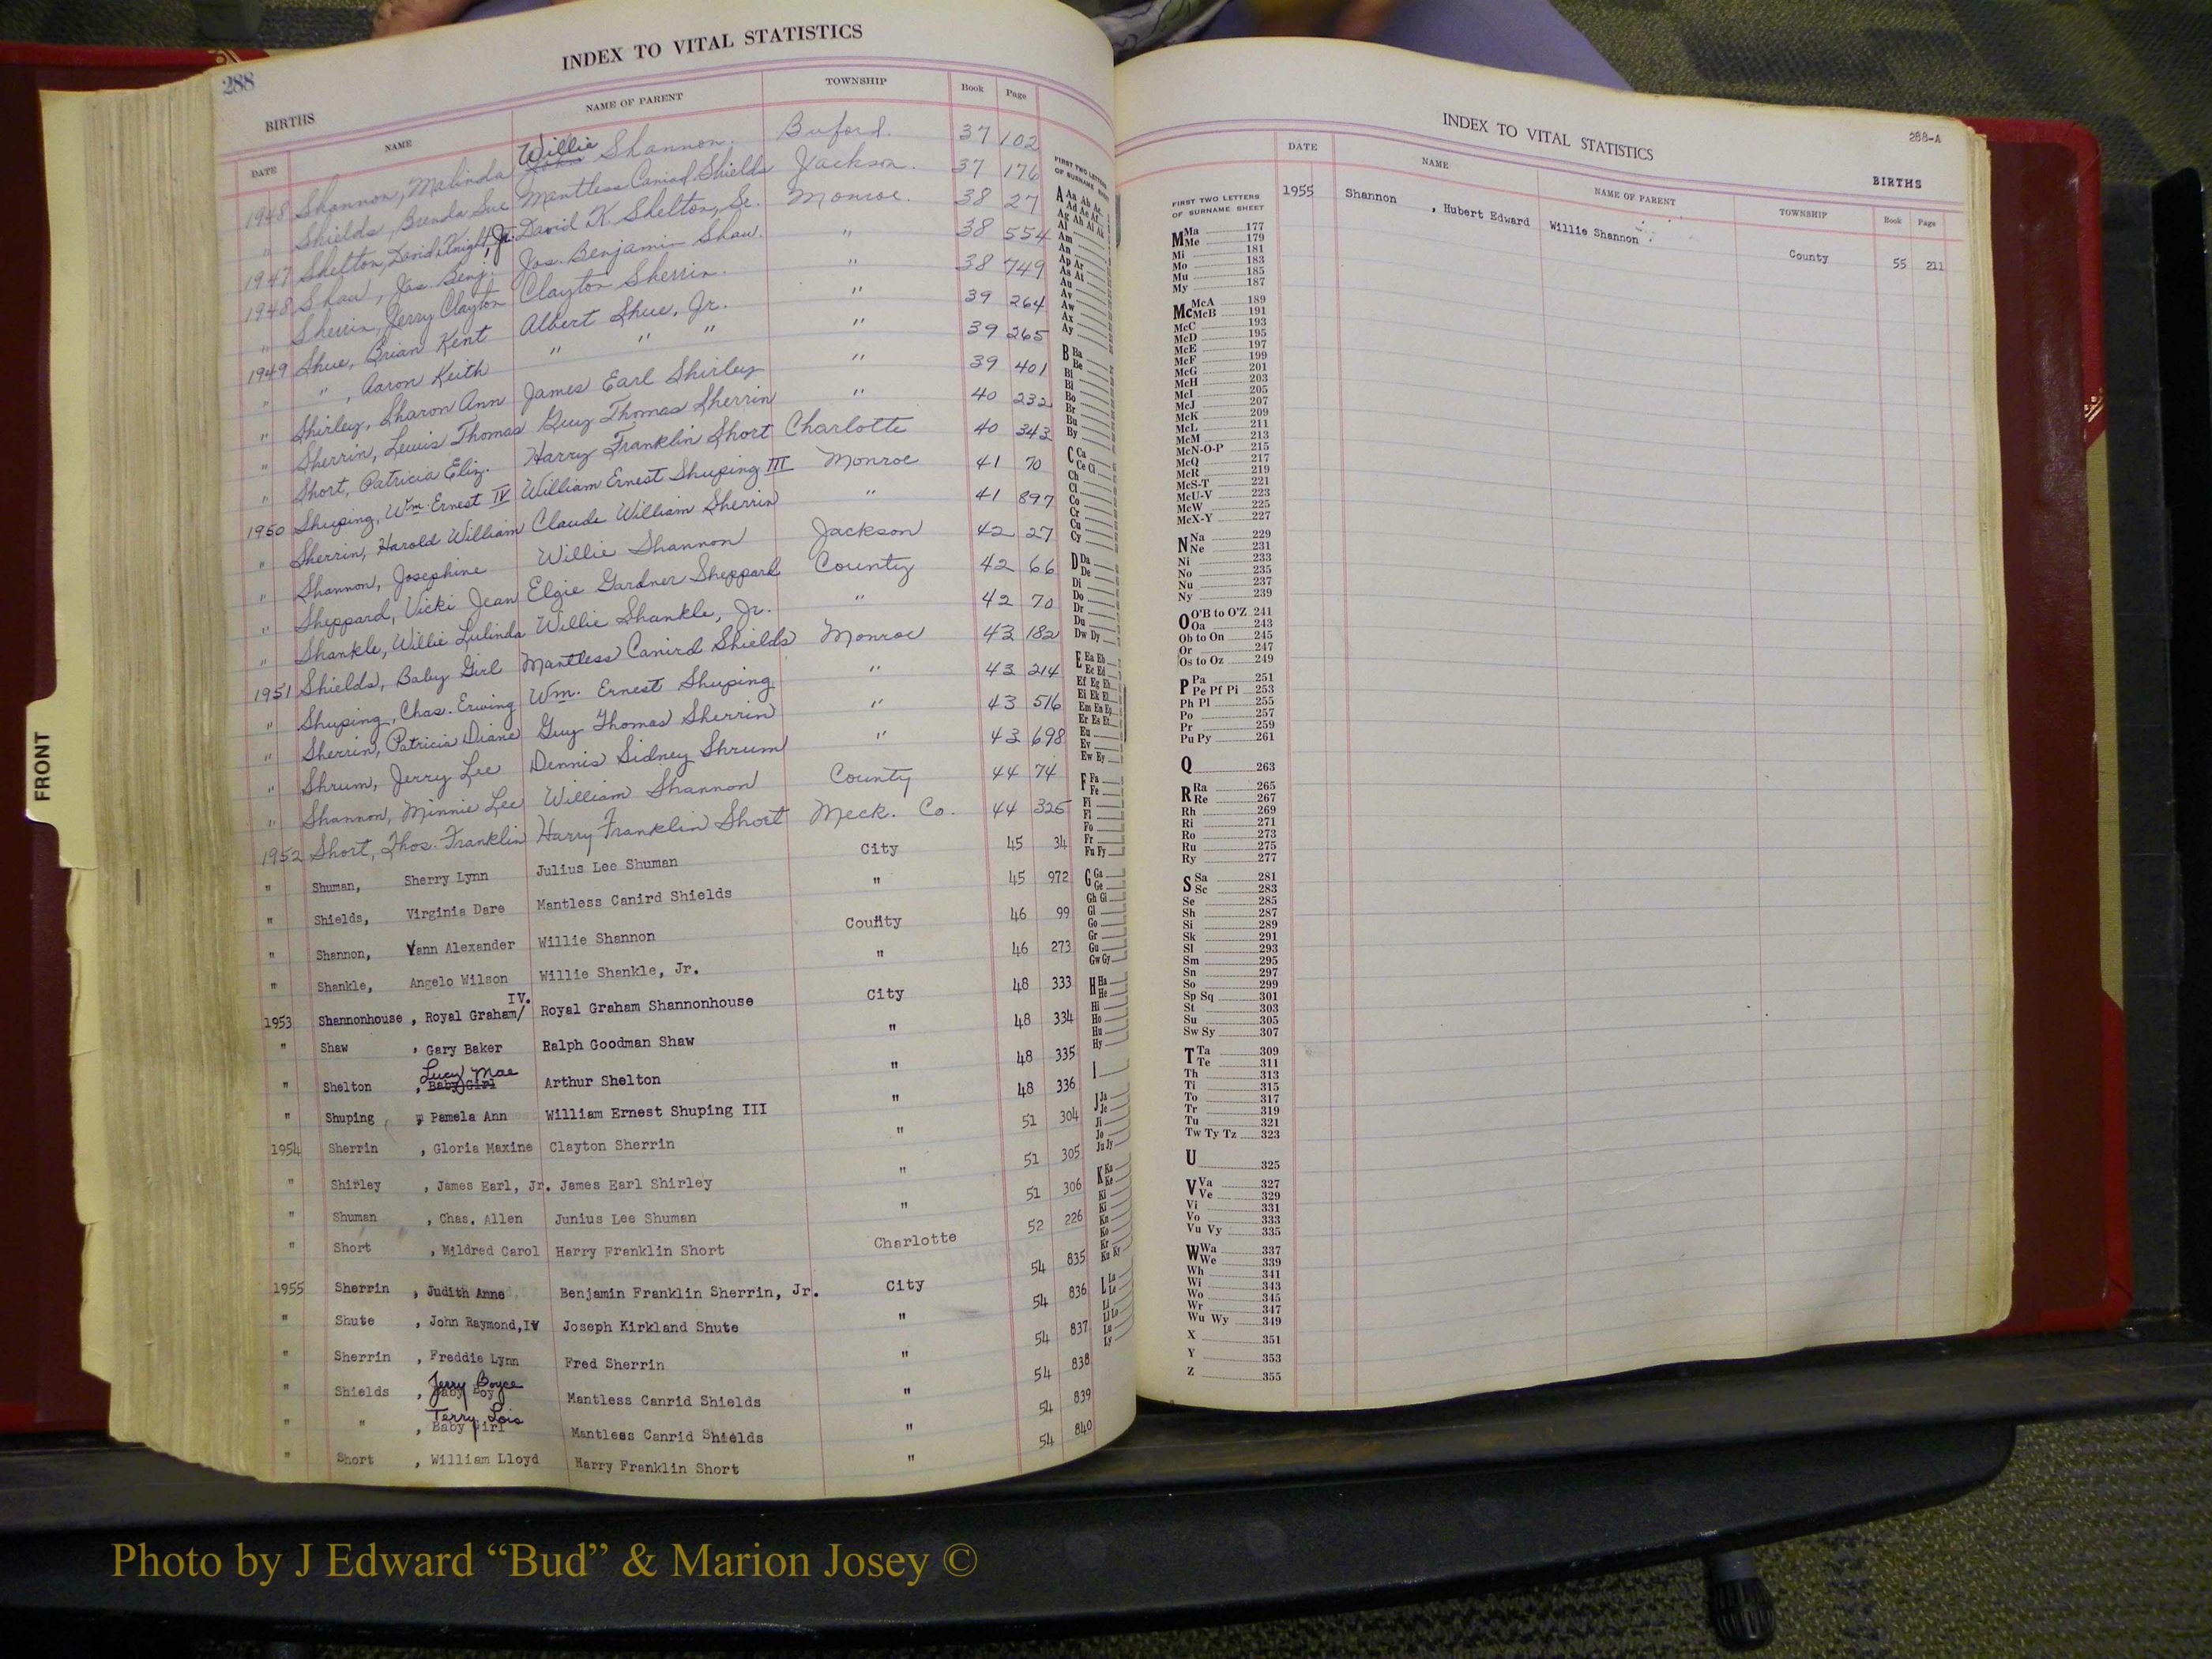 288
INDEX TO VITAL STATISTICS
BIRTHS
DATE NAME NAME OF PARENT TOWNSHIP Book Page
1948 Shannon, Malinda Willie Shannon. Buford. 37 102
" Shields, Brenda Sue Mantless Canird Shields Jackson. 37 176
1947 Shelton, David Knight, Jr. David K. Shelton, Sr. Monroe. 38 27
1948 Shaw, Jas. Benj. Jas. Benjamin Shaw. " 38 554
" Sherrin, Jerry Clayton Clayton Sherrin. " 38 749
1949 Shue, Brian Kent Albert Shue, Jr. " 39 264
" " , Aaron Keith " " " " 39 265
" Shirley, Sharon Ann James Earl Shirley " 39 401
" Sherrin, Lewis Thomas Guy Thomas Sherrin " 40 232
" Short, Patricia Eliz. Harry Franklin Short Charlotte 40 343
1950 Shuping, Wm. Ernest IV William Ernest Shuping III Monroe 41 70
" Sherrin, Harold William Claude William Sherrin " 41 897
" Shannon, Josephine Willie Shannon Jackson 42 27
" Sheppard, Vicki Jean Elgie Gardner Sheppard County 42 66
" Shankle, Willie Lulinda Willie Shankle, Jr. " 42 70
1951 Shields, Baby Girl Mantless Canird Shields Monroe 43 182
" Shuping, Chas. Erwing Wm. Ernest Shuping " 43 214
" Sherrin, Patricia Diane Guy Thomas Sherrin " 43 516
" Shrum, Jerry Lee Dennis Sidney Shrum " 43 698
" Shannon, Minnie Lee William Shannon County 44 74
1952 Short, Thos. Franklin Harry Franklin Short Meck. Co. 44 325
" Shuman, Sherry Lynn Julius Lee Shuman City 45 34
" Shields, Virginia Dare Mantless Canird Shields " 45 972
" Shannon, Vann Alexander Willie Shannon County 46 99
" Shankle, Angelo Wilson Willie Shankle, Jr. " 46 273
1953 Shannonhouse , Royal Graham/ IV. Royal Graham Shannonhouse City 48 333
" Shaw , Gary Baker Ralph Goodman Shaw " 48 334
" Shelton , Baby Girl Lucy Mae Arthur Shelton " 48 335
" Shuping , Pamela Ann William Ernest Shuping III " 48 336
1954 Sherrin , Gloria Maxine Clayton Sherrin " 51 304
" Shirley , James Earl, Jr. James Earl Shirley " 51 305
" Shuman , Chas. Allen Junius Lee Shuman " 51 306
" Short , Mildred Carol Harry Franklin Short Charlotte 52 226
1955 Sherrin , Judith Anne Benjamin Franklin Sherrin, Jr. City 54 835
" Shute , John Raymond, IV Joseph Kirkland Shute " 54 836
" Sherrin , Freddie Lynn Fred Sherrin " 54 837
" Shields , Baby Boy Jerry Boyce Mantless Canrid Shields " 54 838
" " , Baby Girl Terry Lois Mantless Canrid Shields " 54 839
" Short , William Lloyd Harry Franklin Short " 54 840
FRONT
FIRST TWO LETTERS
A Aa Ab Ac
Ad Ae Af
Ag Ah Ai Ak
Al
Am
An
Ap Ar
As At
Au
Av
Aw
Ax
Ay
B Ba
Be
Bi
Bl
Bo
Br
Bu
By
C Ca
Ce Ci
Ch
Cl
Co
Cr
Cu
Cy
D Da
De
Di
Do
Dr
Du
Dw Dy
E Ea Eb
Ec Ed
Ef Eg Eh
Ei Ek El
Em En Ep
Er Es Et
Eu
Ev
Ew Ey
F Fa
Fe
Fi
Fl
Fo
Fr
Fu Fy
G Ga
Ge
Gh Gi
Gl
Go
Gr
Gu
Gw Gy
H Ha
He
Hi
Ho
Hu
Hy
I
J Ja
Je
Ji
Jo
Ju Jy
K Ka
Ke
Ki
Kl
Kn
Ko
Kr
Ku Ky
L La
Le
Li
Ll Lo
Lu
Ly
INDEX TO VITAL STATISTICS
288-A
BIRTHS
DATE NAME NAME OF PARENT TOWNSHIP Book Page
1955 Shannon , Hubert Edward Willie Shannon County 55 211
FIRST TWO LETTERS
OF SURNAME SHEET
M Ma 177
Me 179
Mi 181
Mo 183
Mu 185
My 187
Mc McA 189
McB 191
McC 193
McD 195
McE 197
McF 199
McG 201
McH 203
McI 205
McJ 207
McK 209
McL 211
McM 213
McN-O-P 215
McQ 217
McR 219
McS-T 221
McU-V 223
McW 225
McX-Y 227
N Na 229
Ne 231
Ni 233
No 235
Nu 237
Ny 239
O O'B to O'Z 241
Oa 243
Ob to On 245
Or 247
Os to Oz 249
P Pa 251
Pe Pf Pi 253
Ph Pl 255
Po 257
Pr 259
Pu Py 261
Q 263
R Ra 265
Re 267
Rh 269
Ri 271
Ro 273
Ru 275
Ry 277
S Sa 281
Sc 283
Se 285
Sh 287
Si 289
Sk 291
Sl 293
Sm 295
Sn 297
So 299
Sp Sq 301
St 303
Su 305
Sw Sy 307
T Ta 309
Te 311
Th 313
Ti 315
To 317
Tr 319
Tu 321
Tw Ty Tz 323
U 325
V Va 327
Ve 329
Vi 331
Vo 333
Vu Vy 335
W Wa 337
We 339
Wh 341
Wi 343
Wo 345
Wr 347
Wu Wy 349
X 351
Y 353
Z 355
Photo by J Edward “Bud” & Marion Josey ©